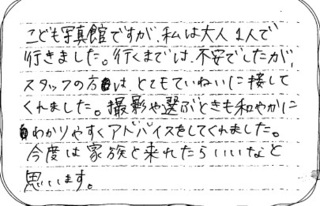 こども写真館ですが、私は大人1人で
行きました。行くまでは、不安でしたが、
スタッフの方はとてもていねいに接して
くれました。撮影や選ぶときも和やかに
わかりやすくアドバイスをしてくれました。
今度は家族と来れたらいいなと
思います。